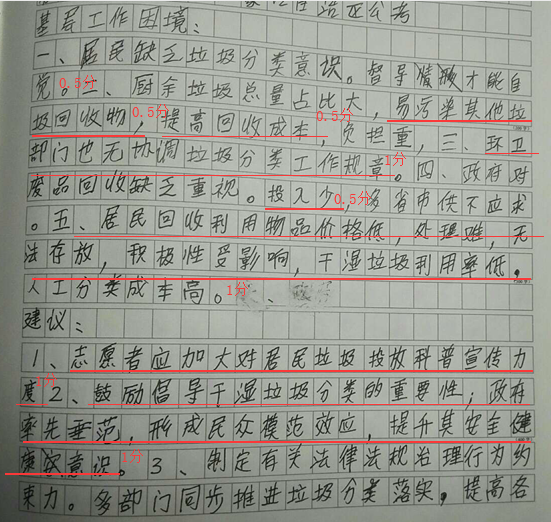 基层工作困境:
一、居民缺乏垃圾分类意识。督导情形才能自
觉。二、厨余垃圾总量占比大,易污染其他垃
圾回收物,提高回收成本,负担重,三、环卫
部门也无协调垃圾分类工作规章。四、政府对
废品回收缺乏重视。投入少,多省市供不应求
。五、居民回收利用物品价格低,处理难,无
法存放,积极性受影响,干湿垃圾利用率低,
人工分类成本高。
建议:
1、志愿者应加大对居民垃圾投放科普宣传力
度 2、鼓励倡导干湿垃圾分类的重要性;政府
率先垂范,形成民众模范效应,提升其安全健
康意识。3、制定有关法律法规治理行为约
束力。多部门同步推进垃圾分类落实,提高各
0.5分
0.5分
0.5分
1分
0.5分
1分
1分
1分